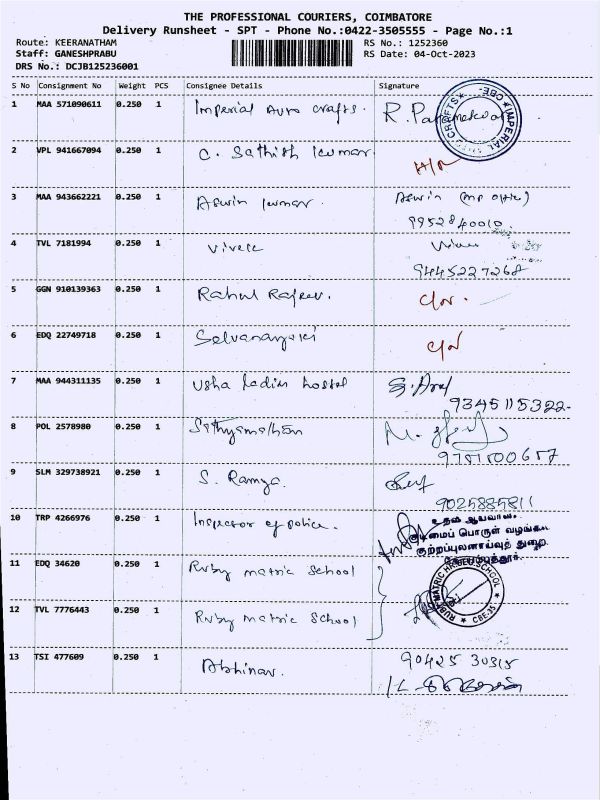 THE PROFESSIONAL COURIERS, COIMBATORE
Delivery Runsheet - SPT - Phone No.:0422-3505555 - Page No.:1
Route: KEERANATHAM RS No.: 1252360
Staff: GANESHPRABU RS Date: 04-Oct-2023
DRS No.: DCJB125236001
S No Consignment No Weight PCS Consignee Details Signature
1 MAA 571090611 0.250 1 Imperial Auto crafts.
2 VPL 941667094 0.250 1 C. Sathish Kumar.
3 MAA 943662221 0.250 1 Aswin Kumar. Aswin
9952840010
4 TVL 7181994 0.250 1 Vivek
9445227268
5 GGN 910139363 0.250 1 Rahul Rajeev.
6 EDQ 22749718 0.250 1 Selvanayaki
7 MAA 944311135 0.250 1 Usha Ladies hostel
9345115322
8 POL 2578980 0.250 1 Sathyamathan
9 SLM 329738921 0.250 1 S. Ramya.
9025885811
10 TRP 4266976 0.250 1 Inspector of police.
உதவி ஆய்வாளர்
குடிமைப் பொருள் வழங்கல்
குற்றப்புலனாய்வுத் துறை
கோயம்புத்தூர்.
11 EDQ 34620 0.250 1 Ruby matric School
RUBY MATRIC HR SEC SCHOOL
CBE-35
12 TVL 7776443 0.250 1 Ruby matric School
13 TSI 477609 0.250 1 Abhinav. 90425 30315